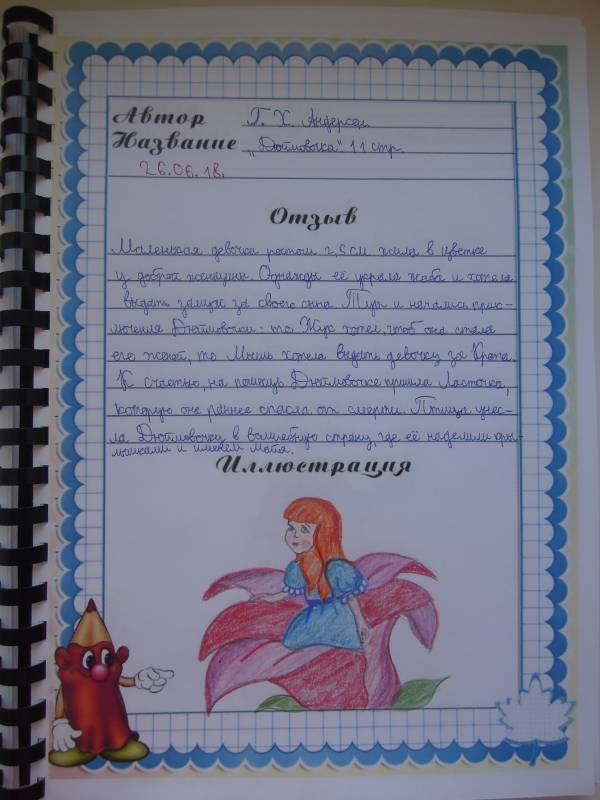 Автор Г. Х. Андерсен.
Название „Дюймовочка". 11 стр.
26.06.18.
Отзыв
Маленькая девочка ростом 2,5 см жила в цветке
у доброй женщины. Однажды её украла жаба и хотела
выдать замуж за своего сына. Тут и начались прик-
лючения Дюймовочки: то Жук хотел, чтоб она стала
его женой, то Мышь хотела выдать девочку за Крота.
К счастью, на помощь Дюймовочке пришла Ласточка,
которую она раннее спасла от смерти. Птица унес-
ла Дюймовочку в волшебную страну, где её наделили кры-
лышками и именем Майя.
Иллюстрация